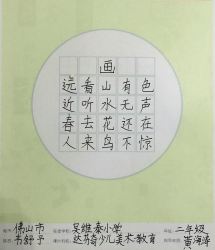 画
远看山有色
近听水无声
春去花还在
人来鸟不惊
佛山市 吴维泰小学 二年级
韦舒予 达芬奇少儿美术教育